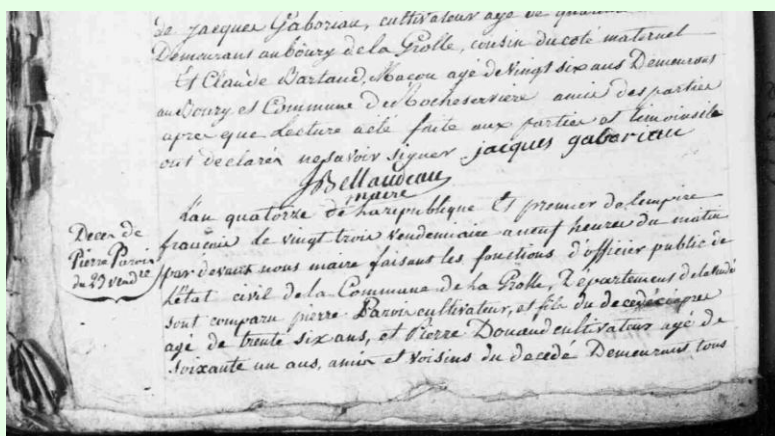 de jacques Gaboriau, cultivateur agé de quarante
Demeurans au bourg de la Grolle, cousin du coté maternel
Et Claude Bartaud, Maçon agé de vingt six ans Demeurans
au Bourg et Commune de Rocheserviere amie des partie
apre que Lecture a été faite aux partie et temoins ils
ont declarée ne savoir signer jacques gaboriau
JBellaudeau
maire
Deces de
Pierre Parois
du 23 vendre
L'an quatorze de la republique Et premier de l'empire
françois le vingt trois vendemiaire a neuf heures du matin
par devant nous maire faisans les fonctions d'officier public de
L'état civil de la Commune de la Grolle, Departement de la vendé
sont comparu pierre Parois cultivateur, et fils du decedé
agé de trente six ans, et Pierre Douaud cultivateur agé de
soixante un ans, amis et voisins du decedé Demeurant tous